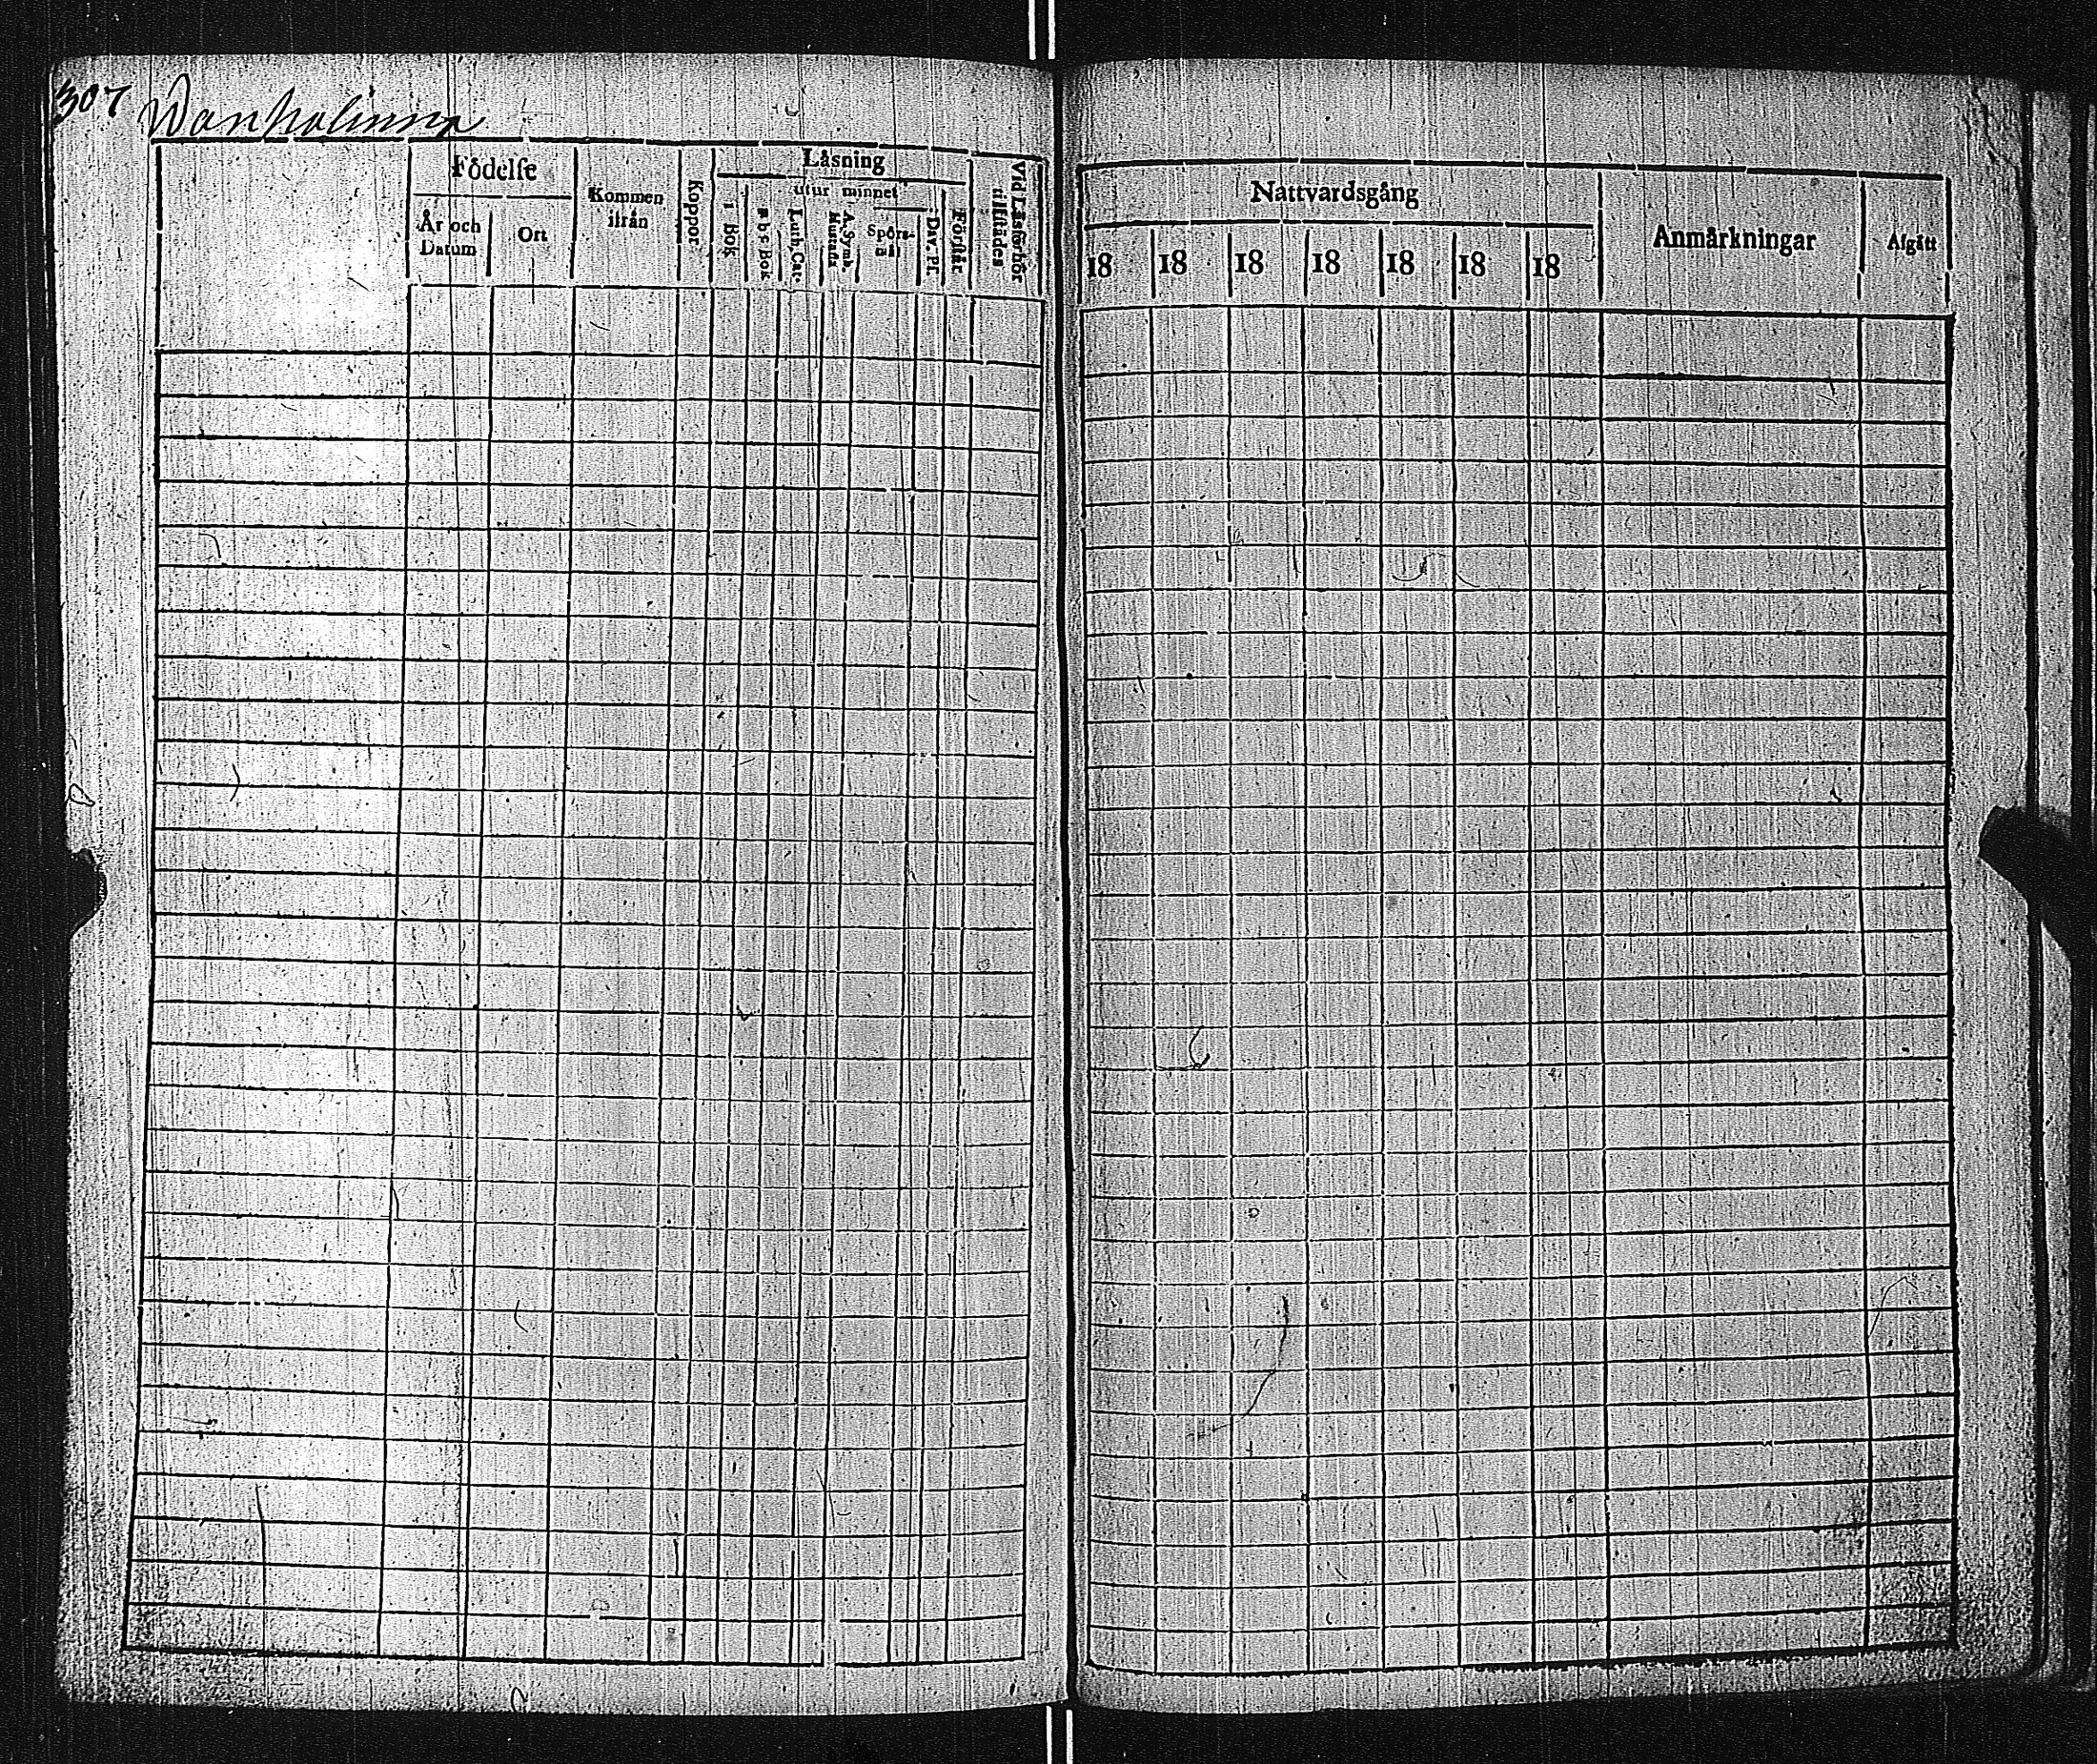 307 Wanhalinna
Födelse
Läsning
utur minnet
Kommen
ifrån
Koppor
År och
Datum
Ort
i Bok
a b c Bok
Luth. Cat.
A. Symb.
Hustafla
Spörs-
mål
Dav. Ps.
Förstår
Vid Läsförhör
tillstädes
Nattvardsgång
Anmärkningar
Afgått
18 18 18 18 18 18 18